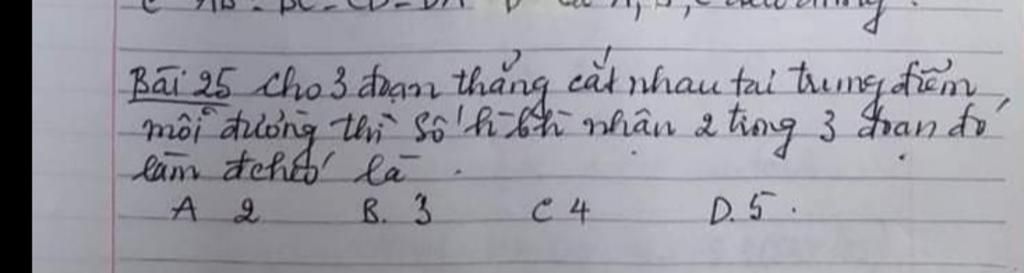 Bài 25 Cho 3 đoạn thẳng cắt nhau tại trung điểm
mỗi đường thì số h-bh nhận 2 trong 3 đoạn đó
làm đchéo là
A 2 B. 3 C 4 D. 5.